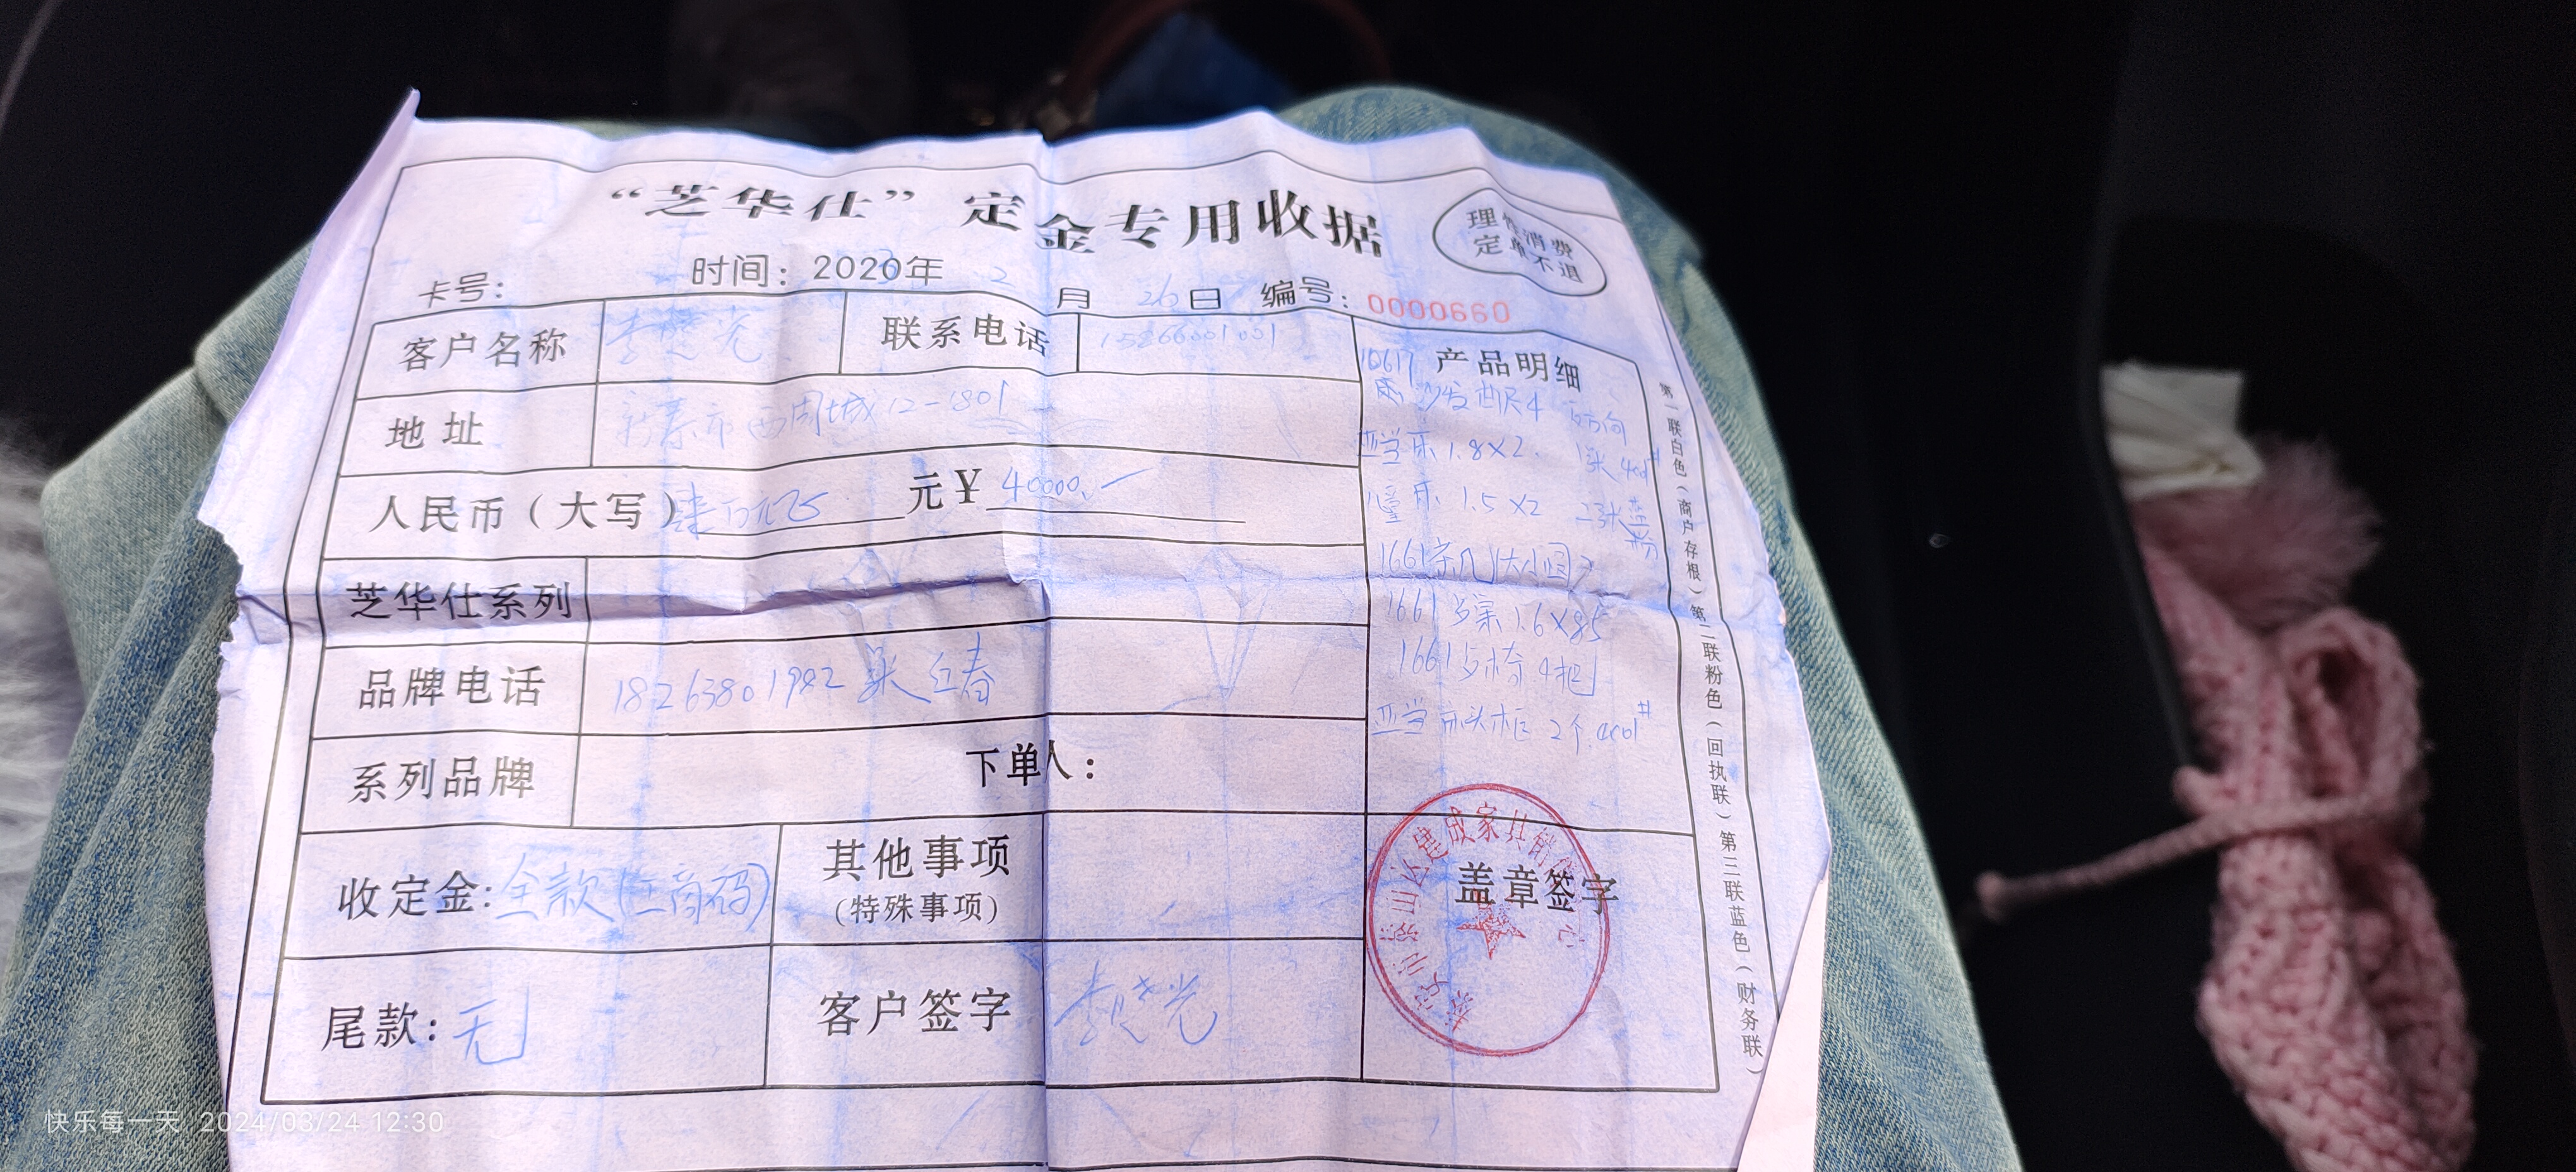 “芝华仕”定金专用收据
理性消费
定单不退
卡号：
时间：2020年 2 月 26 日 编号：0000660
客户名称 李 光 联系电话 15266001001
地址 新泰市西周城12-1801
人民币（大写） 肆万元 元￥ 40000.
芝华仕系列
品牌电话 18263801982 张红春
系列品牌 下单人：
收定金：全款
其他事项
（特殊事项）
尾款：无
客户签字
产品明细
沙发
1.8×2.
1.5×2
1661茶几
1661 1.6×85
1661 椅 4把
床头柜 2个
盖章签字
建成家具销售中心
第一联白色（商户存根）第二联粉色（回执联）第三联蓝色（财务联）
快乐每一天 2024/03/24 12:30